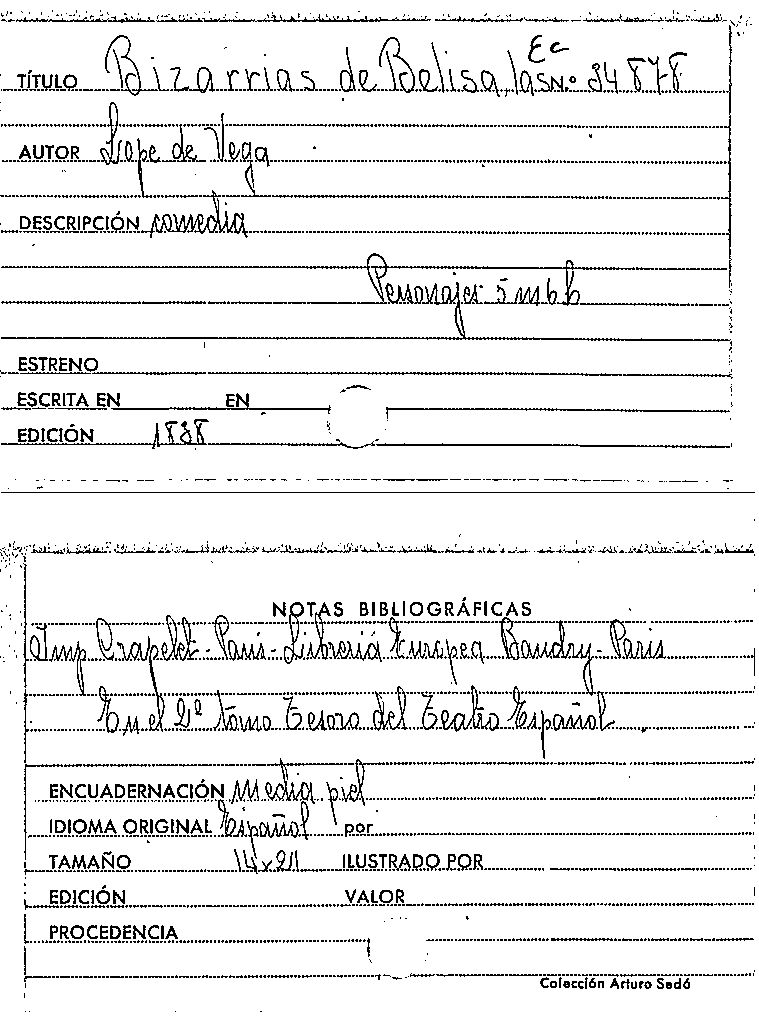 Ec
TÍTULO Bizarrias de Belisa, las N.º 34878
AUTOR Lope de Vega
DESCRIPCIÓN comedia
Personajes 5 m 6 h
ESTRENO
ESCRITA EN EN
EDICIÓN 1838
NOTAS BIBLIOGRÁFICAS
Imp Crapelet - Paris - Libreria Europea Baudry - Paris
En el 2º tomo Tesoro del Teatro Español
ENCUADERNACIÓN media piel
IDIOMA ORIGINAL Español por
TAMAÑO 14x21 ILUSTRADO POR
EDICIÓN VALOR
PROCEDENCIA
Colección Arturo Sedó